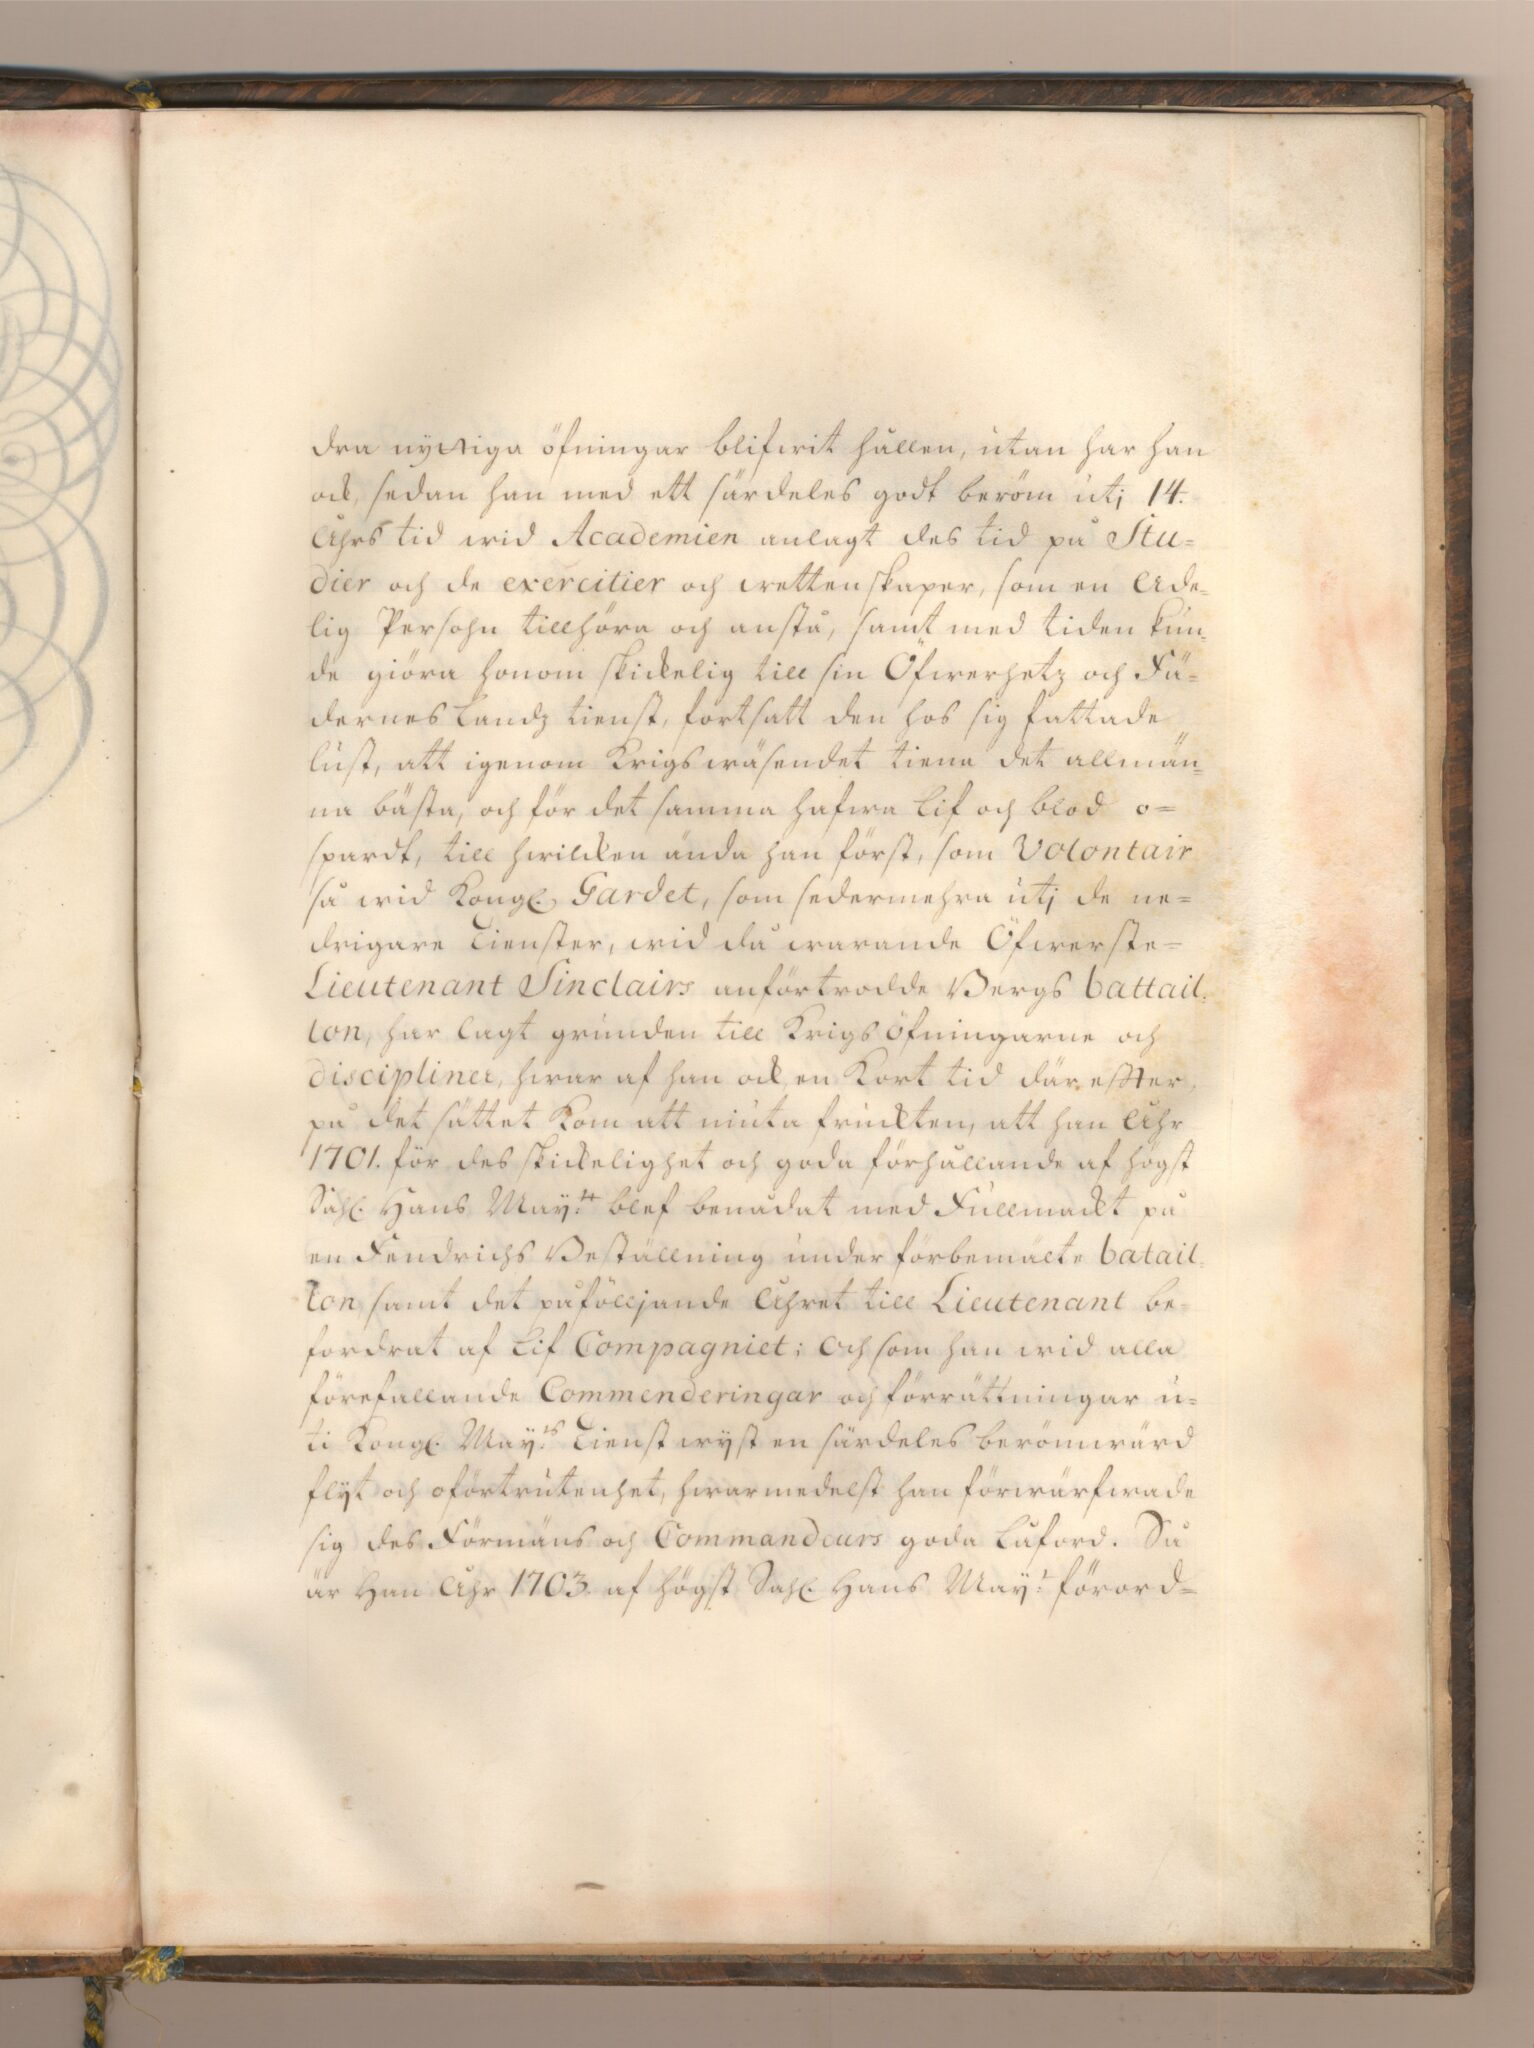 dra nyttiga öfningar blifwit hållen, utan har han
ock, sedan han med ett särdeles godt beröm utj 14.
Åhrs tid wid Academien anlagt des tid på Stu-
dier och de exercitier och wettenskaper, som en Ade-
lig Persohn tillhöra och anstå, samt med tiden kun-
de giöra honom skickelig till sin Öfwerhetz och Fä-
dernes Landz tienst, fortsatt den hos sig fattade
lust, att igenom Krigswäsendet tiena det allmän-
na bästa, och för det samma hafwa Lif och blod o-
spardt, till hwilcken ända han först, som Volontair
så wid Kongl. Gardet, som sedermehra utj de ne-
drigare Tienster, wid då warande Öfwerste-
Lieutenant Sinclairs anförtrodde Bergs battail-
lon, har lagt grunden till Krigs öfningarne och
discipliner, hwar af han ock en Kort tid där effter
på det sättet Kom att niuta fruckten, att han Åhr
1701. för des skickelighet och goda förhållande af högst
Sahl. Hans May:tt blef benådat med Fullmackt på
en Fendrichs Beställning under förbemälte batail-
lon, samt det påfölljande Åhret till Lieutenant be-
fordrat af Lif Compagniet; Och som han wid alla
förefallande Commenderingar och förrättningar u-
ti Kongl. May:ts Tienst wyst en särdeles berömwärd
flyt och oförtrutenhet, hwarmedelst han förwärfwade
sig des Förmäns och Commandeurs goda Låford. Så
är Han Åhr 1703. af högst Sahl. Hans May:t förord-